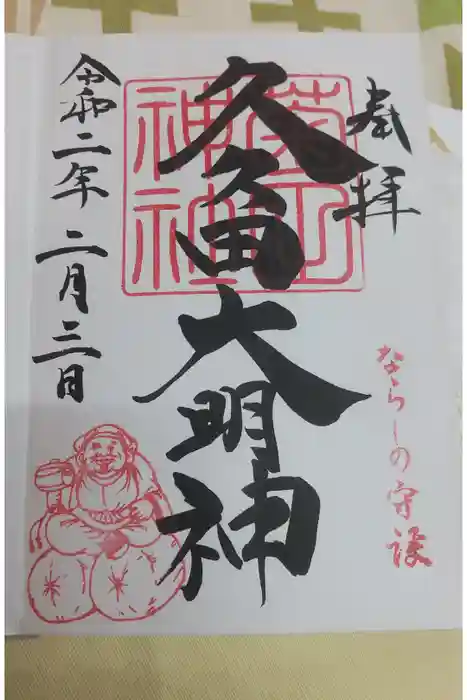 奉拝
ならしの守護
久久田大明神
菊田
神社
令和二年二月三日